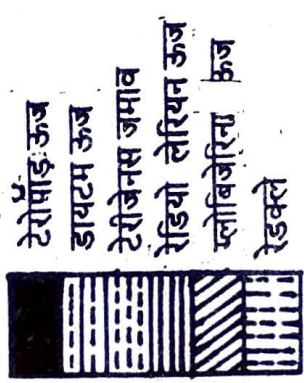 टेरोपॉड ऊज
डायटम ऊज
टेरीजेनस जमाव
रेडियो लेरियन ऊज
ग्लोबिजेरिना ऊज
रेडक्ले